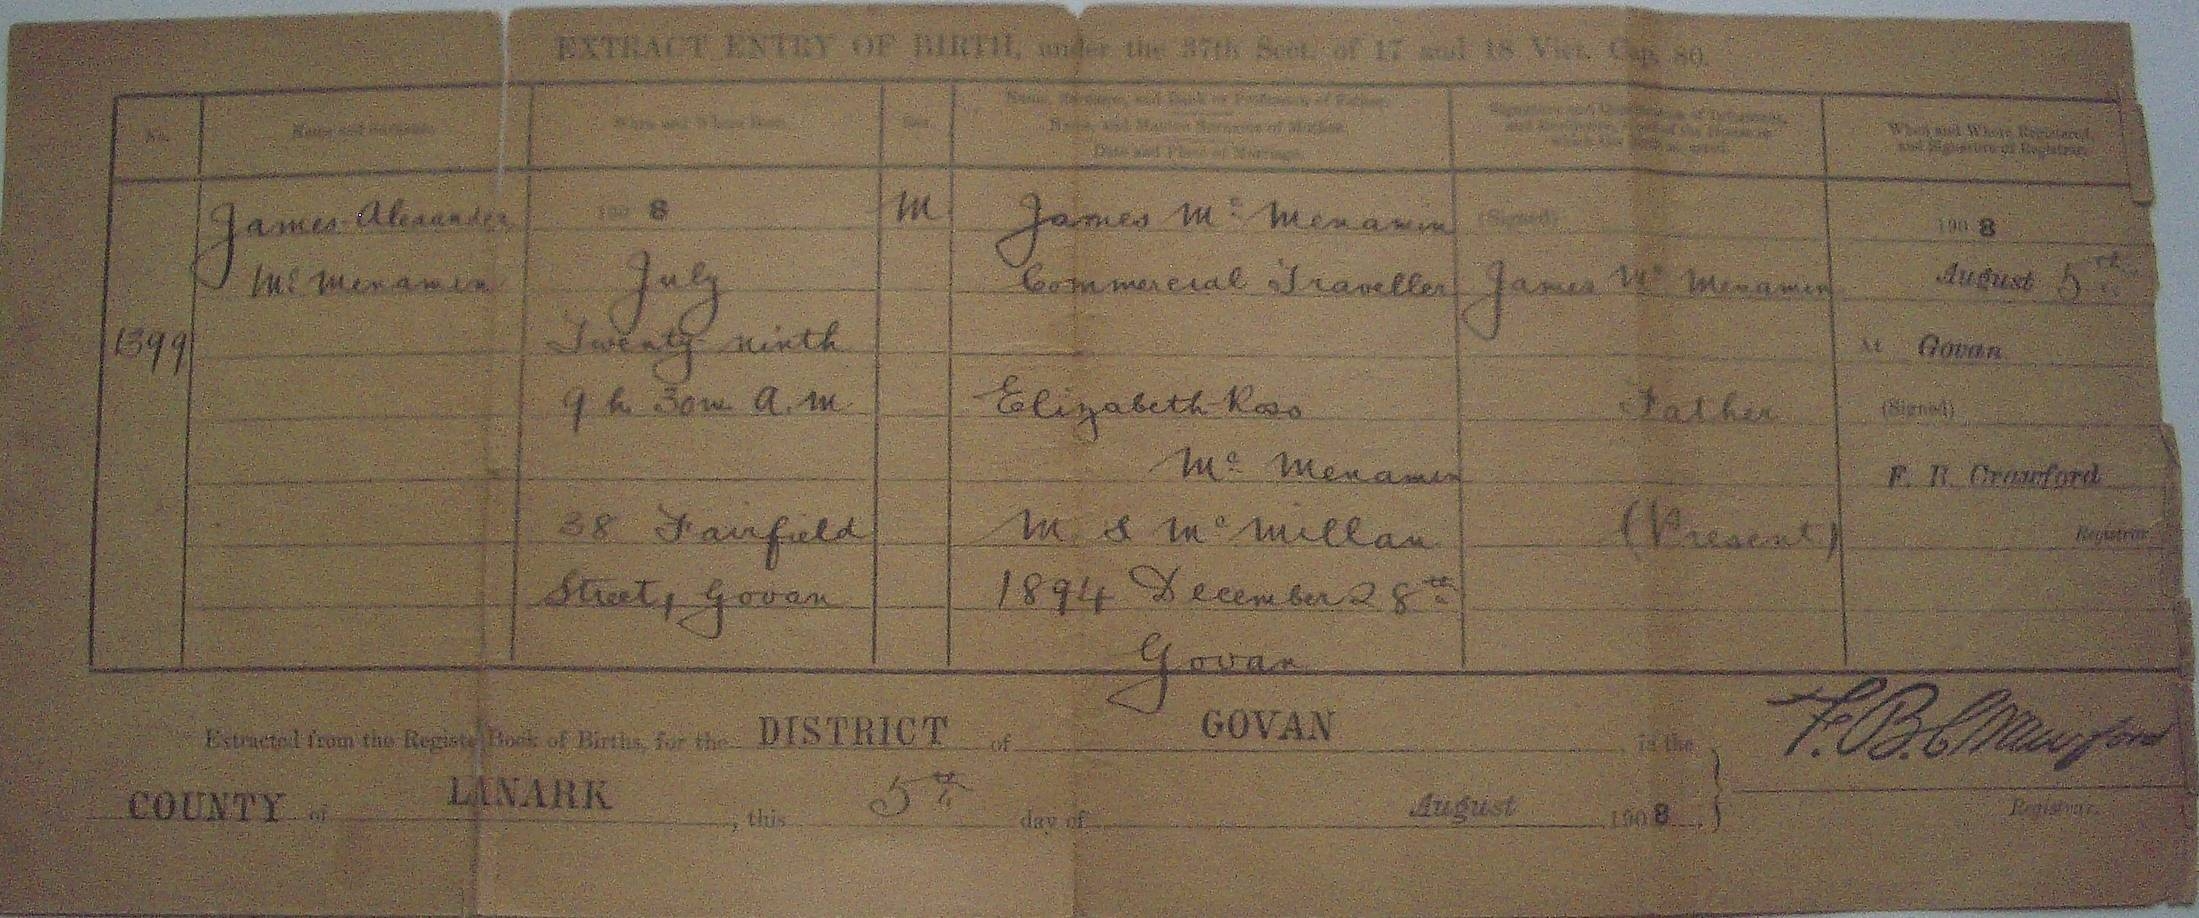 EXTRACT ENTRY OF BIRTH, under the 37th Sect. of 17 and 18 Vict. Cap. 80.
No.
Name and Surname.
When and Where Born.
Sex.
Name, Surname, and Rank or Profession of Father.
Name, and Maiden Surname of Mother.
Date and Place of Marriage.
Signature and Qualification of Informant,
and Residence, if out of the House in
which the Birth occurred.
When and Where Registered,
and Signature of Registrar.
1399
James Alexander
Mc Menamin
1908
July
Twenty ninth
9 h. 30m. A.M.
38 Fairfield
Street, Govan
M
James Mc Menamin
Commercial Traveller
Elizabeth Ross
Mc Menamin
M. S. McMillan
1894 December 28th
Govan
(Signed)
James Mc Menamin
Father
(Present)
1908
August 5th
At Govan
(Signed)
Crawford
Registrar.
Extracted from the Register Book of Births, for the DISTRICT of GOVAN in the
COUNTY of LANARK, this 5th day of August 1908.
F. B. Crawford
Registrar.